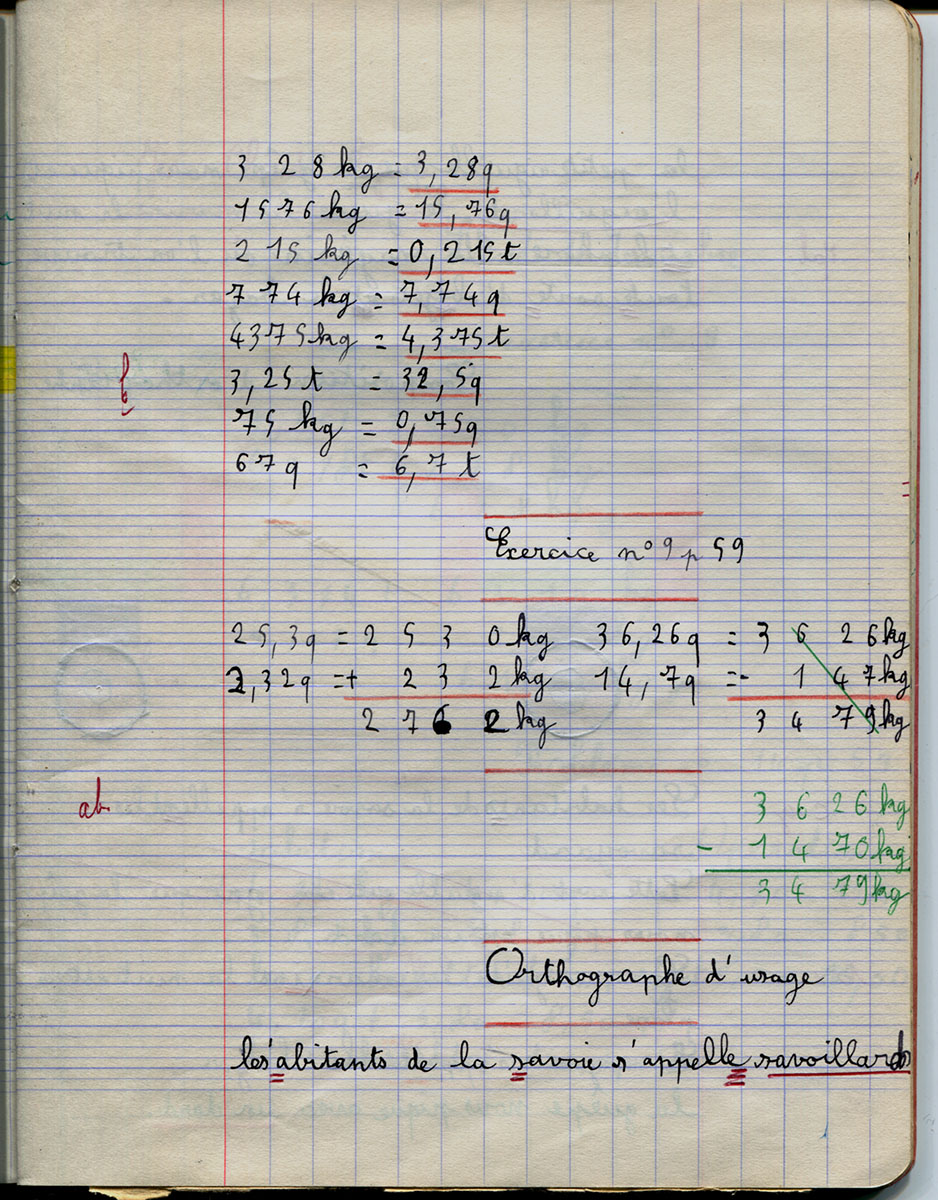 3 28 kg = 3,28q
1576 kg = 15,76q
215 kg = 0,215t
774 kg = 7,74q
4375kg = 4,375t
3,25 t = 32,5q
b
75 kg = 0,75q
67q = 6,7 t
Exercice n° 9 p 59
25,3q = 2 5 3 0kg 36,26q = 3 6 26kg
2,32q = + 2 3 2kg 14,7q = - 1 47kg
2 7 6 2kg 3 4 79kg
ab
3 6 26 kg
- 1 4 70kg
3 4 79kg
Orthographe d'usage
les abitants de la savoie s'appelle savoillards